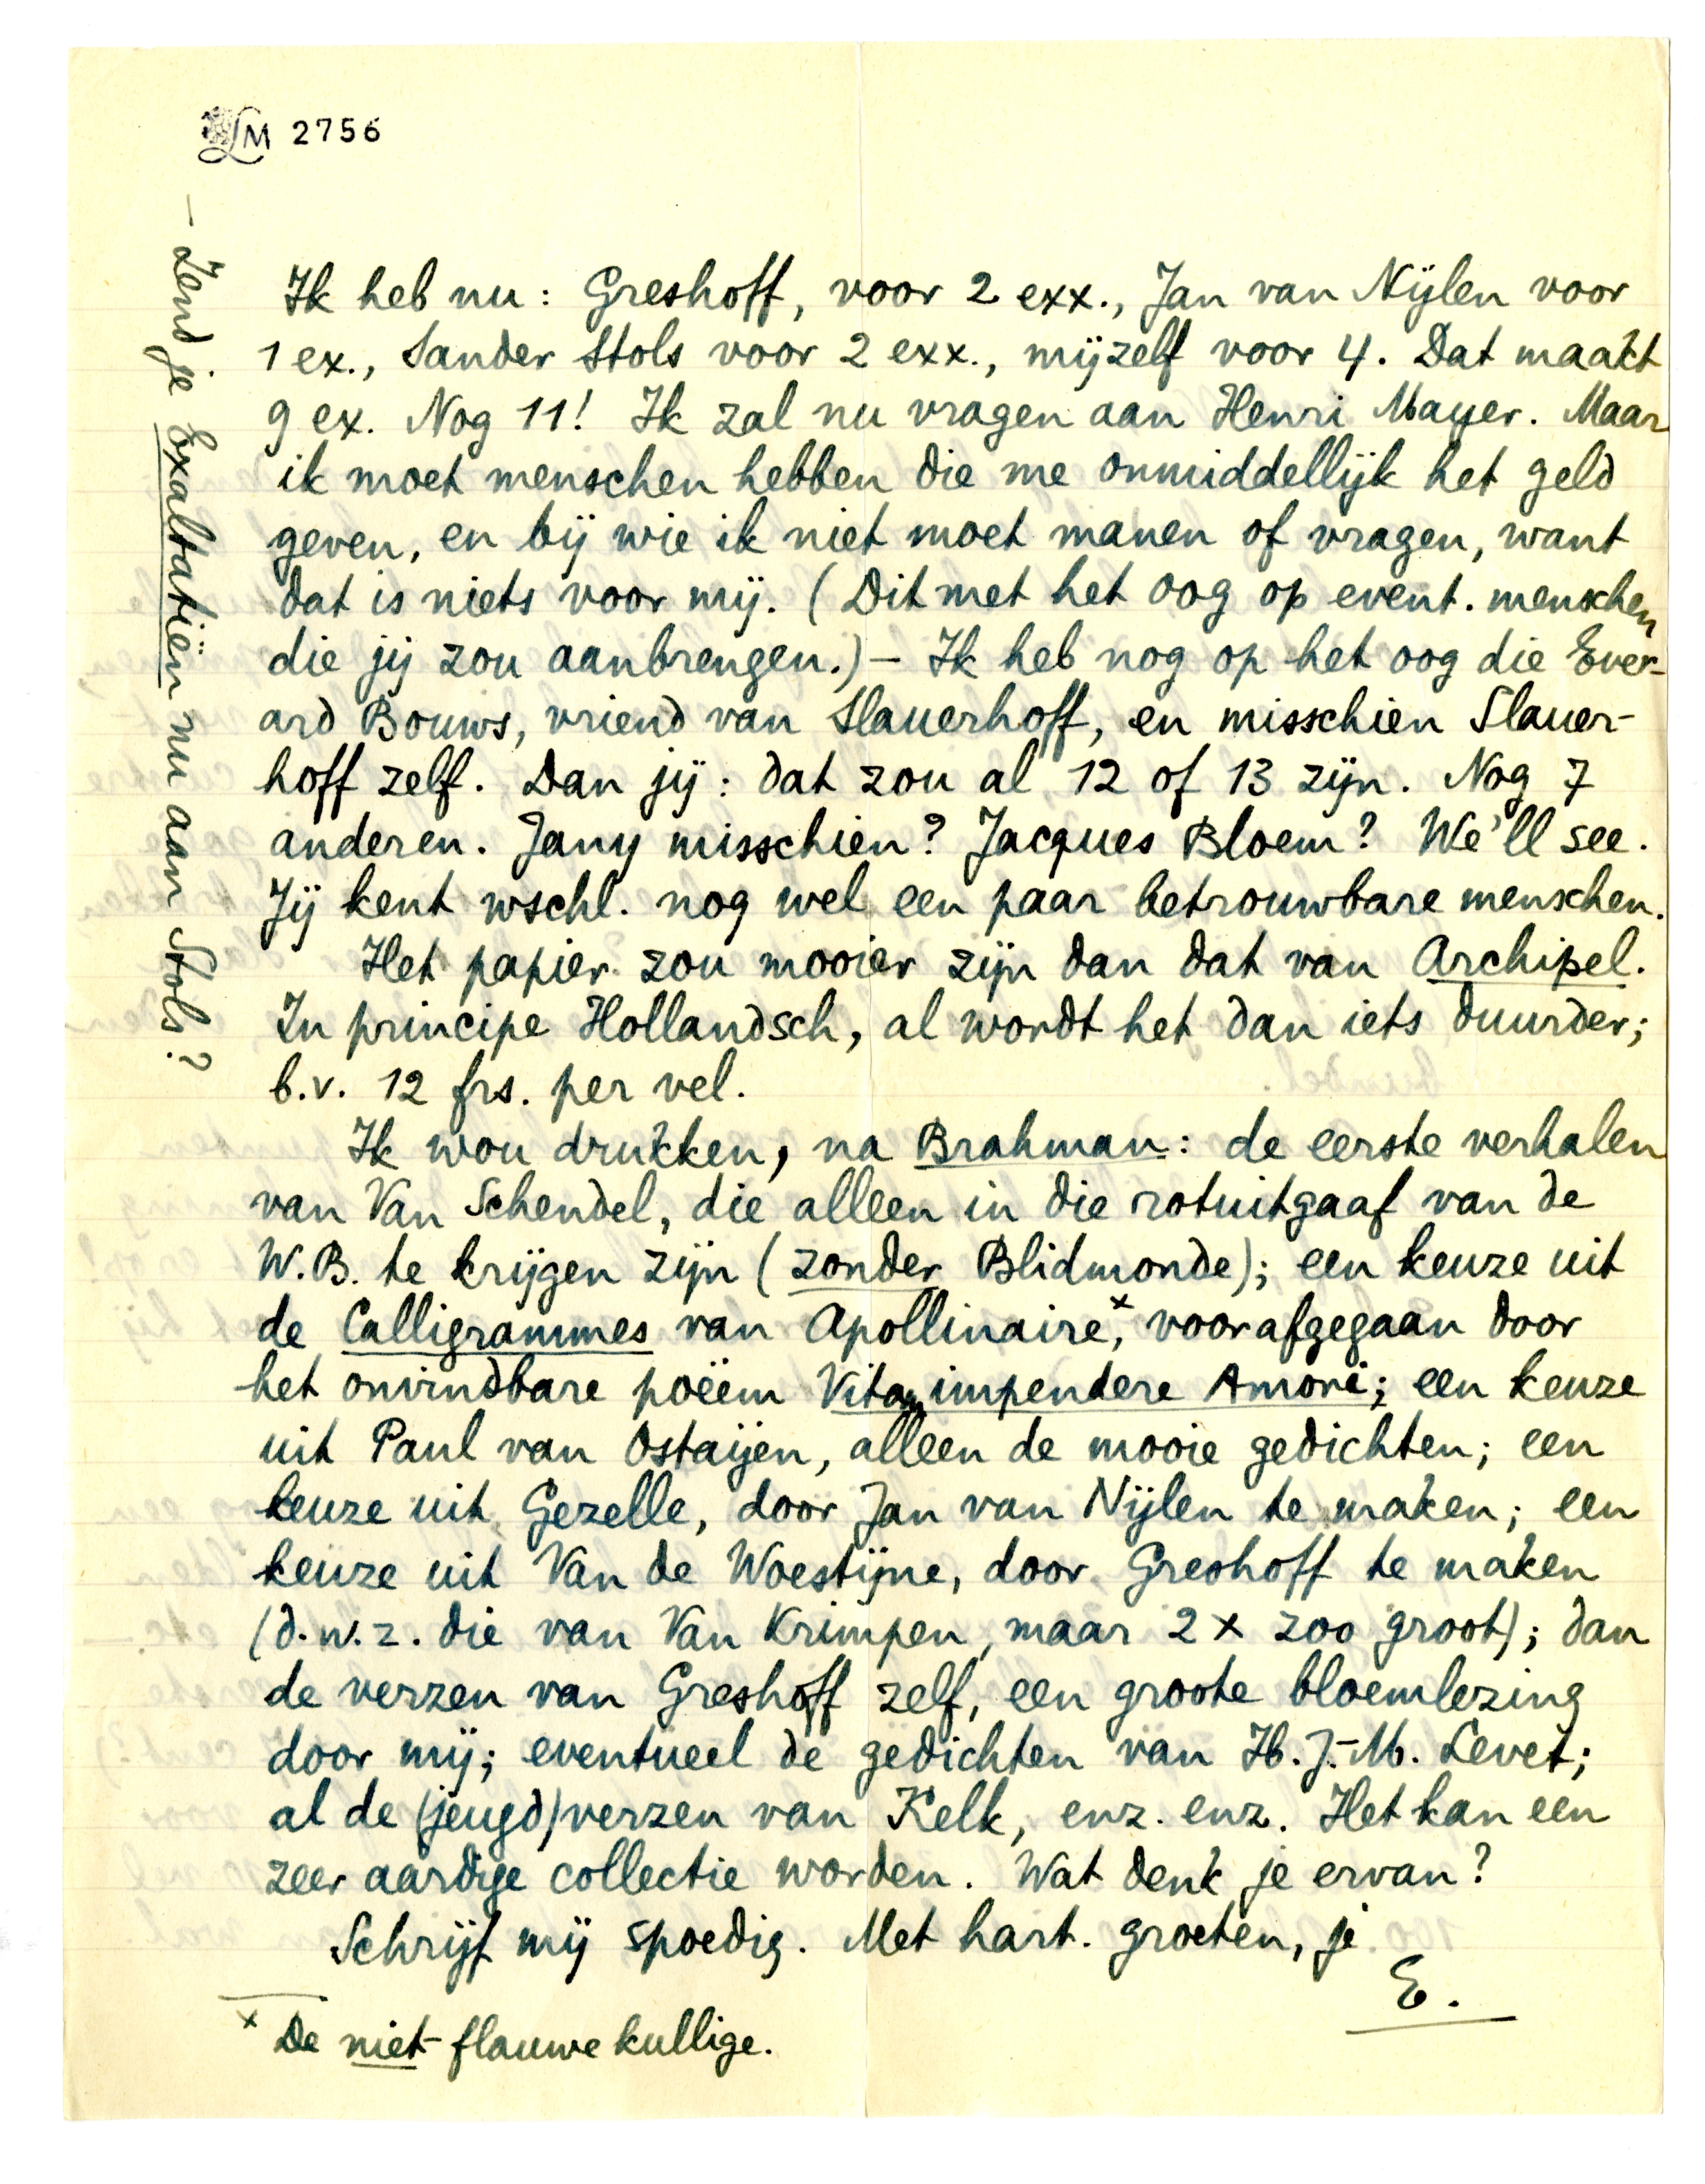 LM 2756
Ik heb nu: Greshoff, voor 2 exx., Jan van Nijlen voor
1 ex., Sander Stols voor 2 exx., mijzelf voor 4. Dat maakt
9 ex. Nog 11! Ik zal nu vragen aan Henri Mayer. Maar
ik moet menschen hebben die me onmiddellijk het geld
geven, en bij wie ik niet moet manen of vragen, want
dat is niets voor mij. (Dit met het oog op event. menschen
die jij zou aanbrengen.) – Ik heb nog op het oog die Ever-
ard Bouws, vriend van Slauerhoff, en misschien Slauer-
hoff zelf. Dan jij: dat zou al 12 of 13 zijn. Nog 7
anderen. Jany misschien? Jacques Bloem? We'll see.
Jij kent wschl. nog wel een paar betrouwbare menschen.
Het papier zou mooier zijn dan dat van Archipel.
In principe Hollandsch, al wordt het dan iets duurder;
b.v. 12 frs. per vel.
Ik wou drukken, na Brahman: de eerste verhalen
van Van Schendel, die alleen in die rotuitgaaf van de
W.B. te krijgen zijn (zonder Blidmonde); een keuze uit
de Calligrammes van Apollinaire,x voorafgegaan door
het onvindbare poëem Vitam impendere Amori; een keuze
uit Paul van Ostaijen, alleen de mooie gedichten; een
keuze uit Gezelle, door Jan van Nijlen te maken; een
keuze uit Van de Woestijne, door Greshoff te maken
(d.w.z. die van Van Krimpen, maar 2 x zoo groot); dan
de verzen van Greshoff zelf, een groote bloemlezing
door mij; eventueel de gedichten van H.J.-M. Levet;
al de (jeugd)verzen van Kelk, enz. enz. Het kan een
zeer aardige collectie worden. Wat denk je ervan?
Schrijf mij spoedig. Met hart. groeten, je
E.
x De niet-flauwekullige.
– Zend je Exaltatiën nu aan Stols?